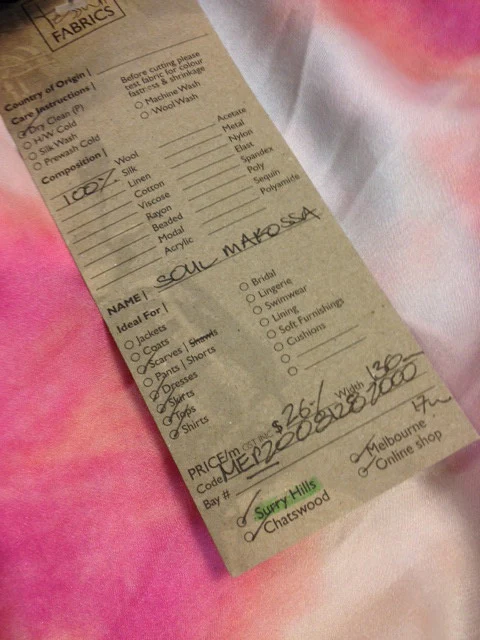 FABRICS
Country of Origin |
Care Instructions |
Before cutting please
test fabric for colour
fastness & shrinkage
Dry Clean (P)
H/W Cold
Silk Wash
Prewash Cold
Machine Wash
Wool Wash
Composition |
Wool
100% Silk
Linen
Cotton
Viscose
Rayon
Beaded
Modal
Acrylic
Acetate
Metal
Nylon
Elast
Spandex
Poly
Sequin
Polyamide
NAME | SOUL MAKOSSA
Ideal For |
Jackets
Coats
Scarves | Shawls
Pants | Shorts
Dresses
Skirts
Tops
Shirts
Bridal
Lingerie
Swimwear
Lining
Soft Furnishings
Cushions
PRICE/m GST inc $26-/ Width 130
Code
Bay #
Surry Hills
Chatswood
Melbourne
Online shop